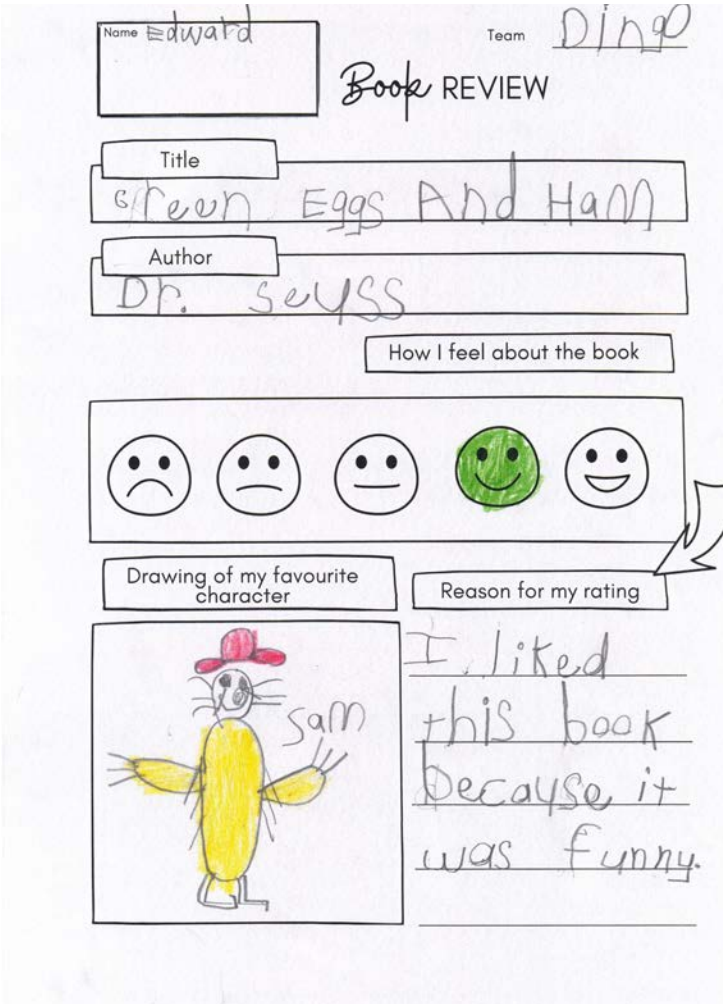 Name Edward
Team Dingo
Book REVIEW
Title
Green Eggs And Ham
Author
Dr. seuss
How I feel about the book
Drawing of my favourite
character
Reason for my rating
Sam
I liked
this book
because it
was funny.